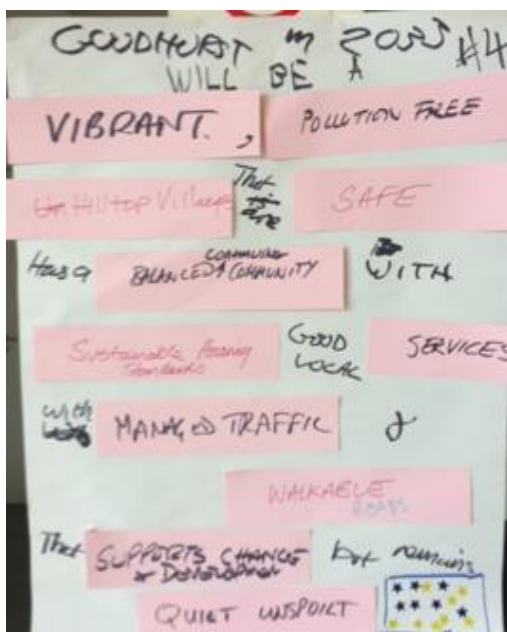 GOODHURST in 2035 #4
WILL BE A
VIBRANT. , POLLUTION FREE
HILLTOP Villages That are SAFE
Has a BALANCED COMMUNITY WITH
Sustainable Housing Standards GOOD LOCAL SERVICES
with MANAGED TRAFFIC &
WALKABLE
ROADS
That SUPPORTS CHANGE
& DEVELOPMENT but remains
QUIET UNSPOILT